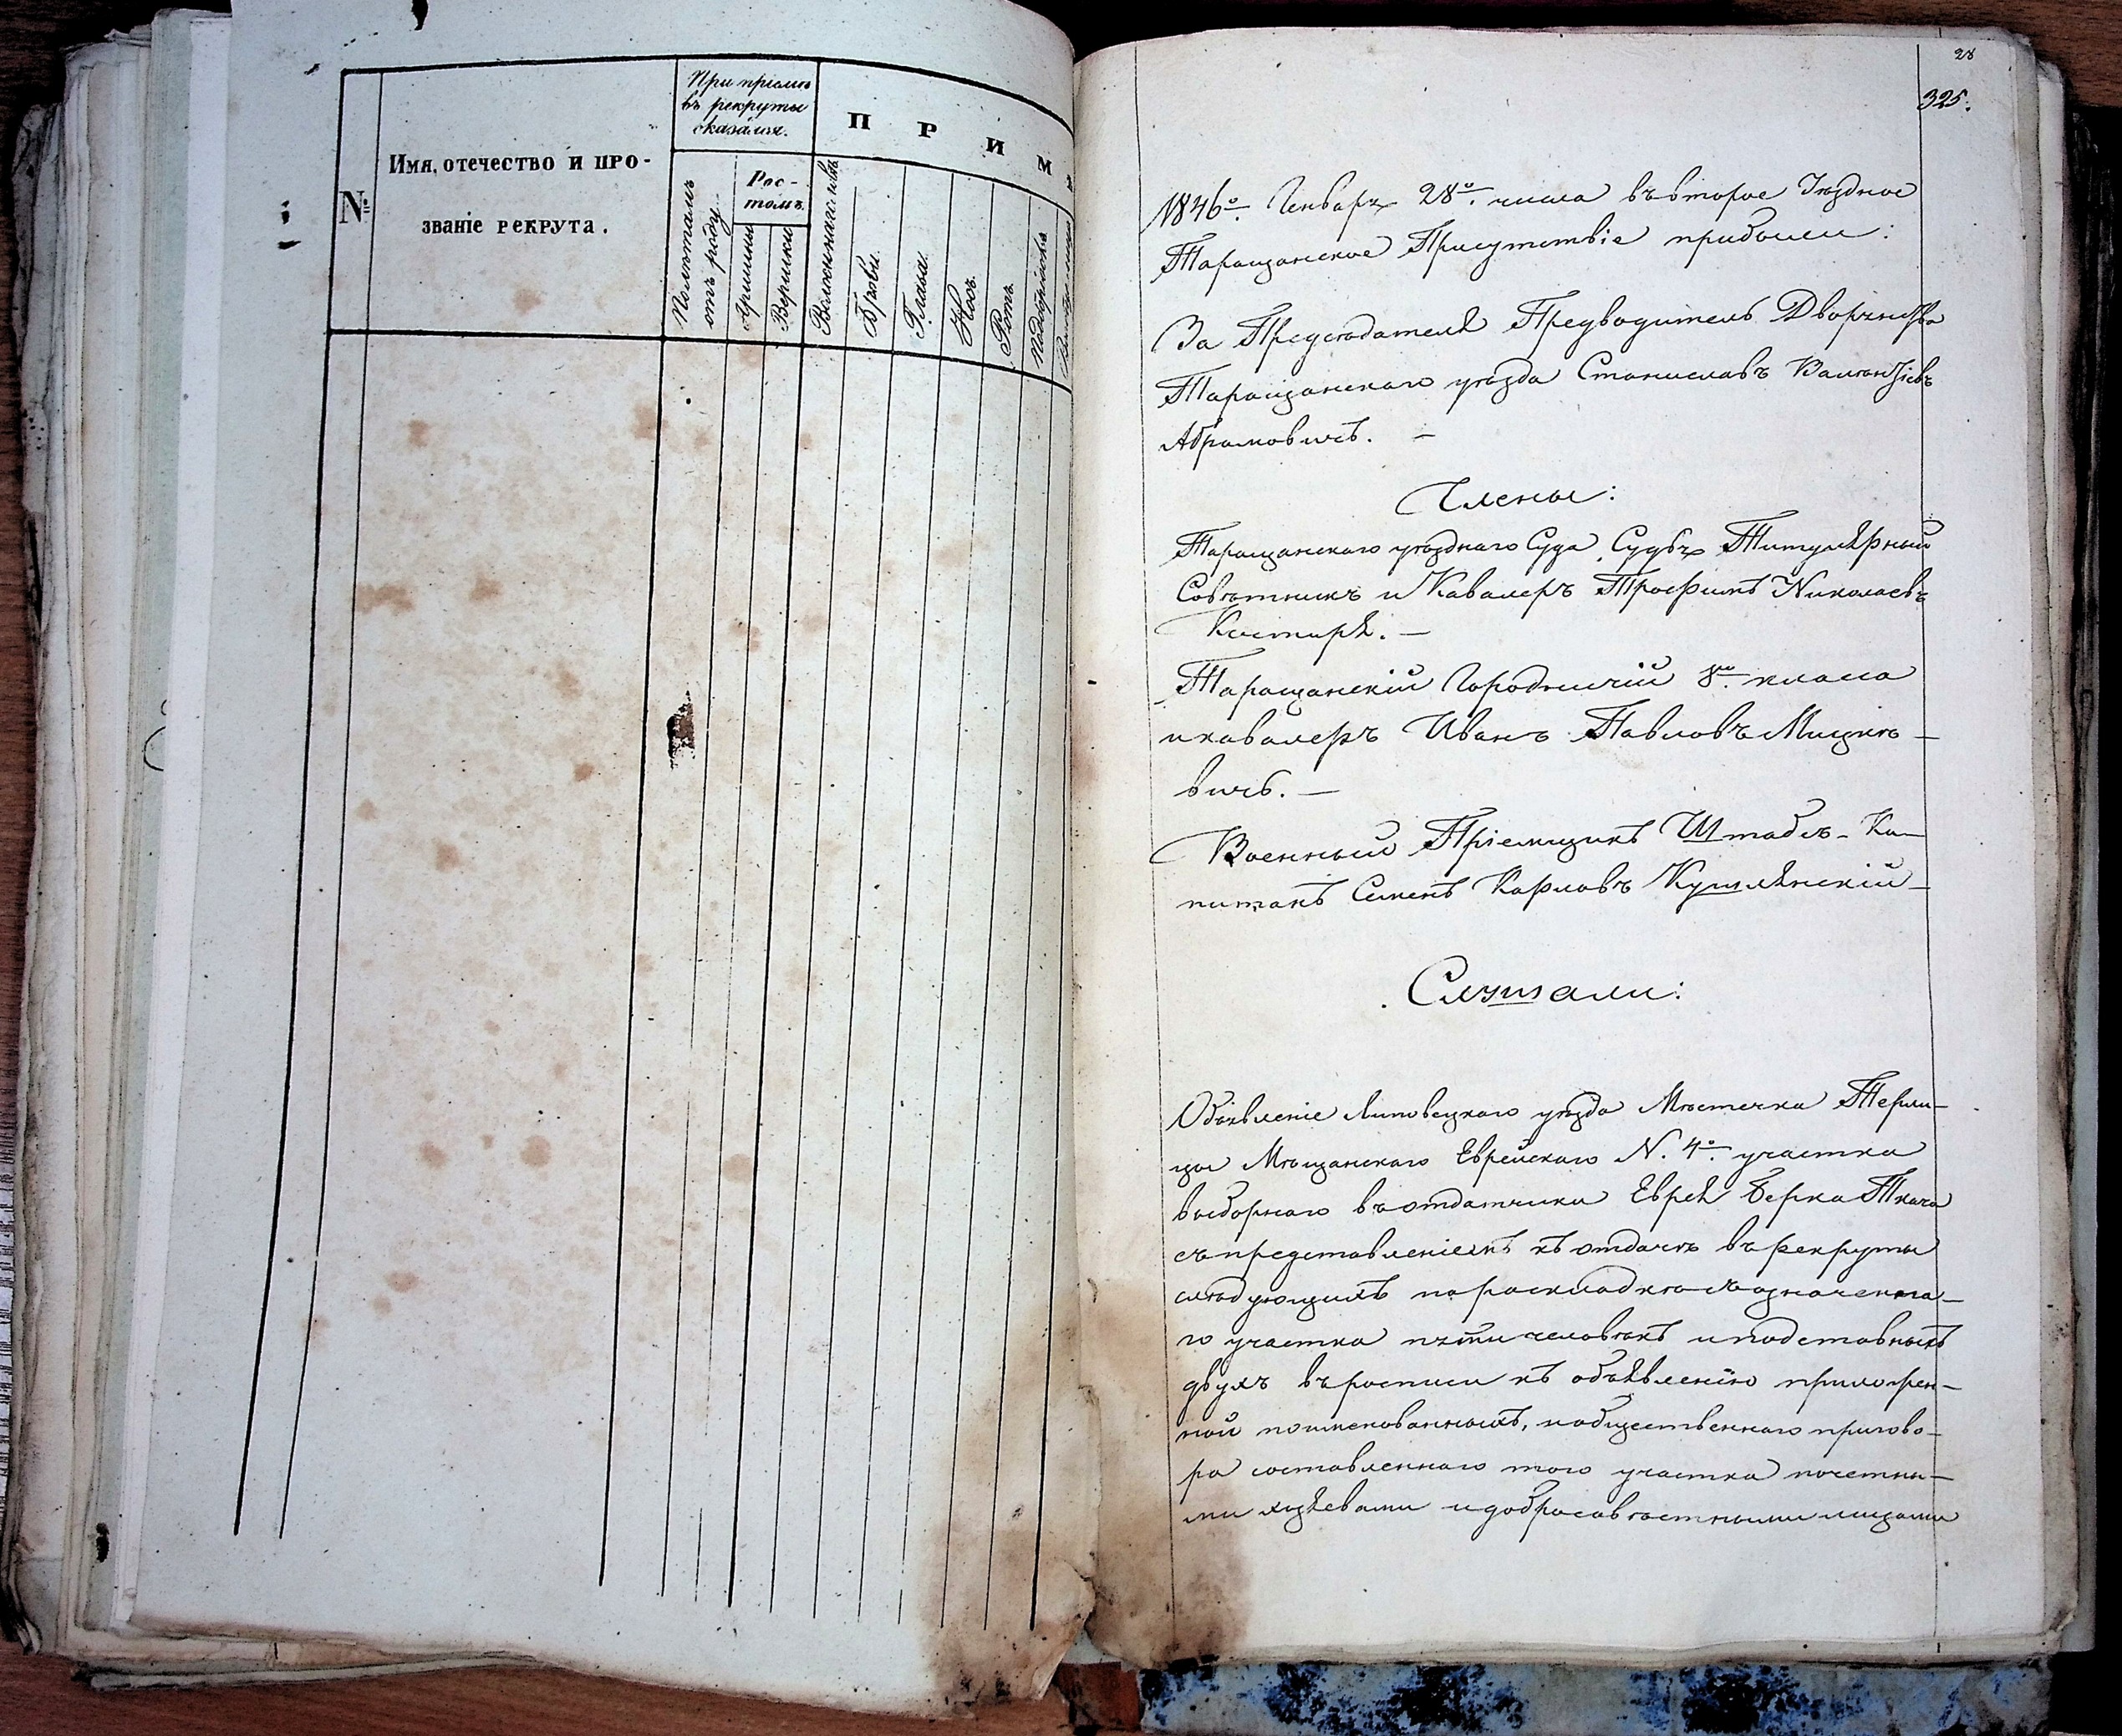 №
Имя, отечество и про-
званіе рекрута.
При пріемѣ
въ рекруты
оказался.
Полѣтамъ
отъ роду.
Рос-
томъ.
Аршины
Вершки
Волосы
Брови.
Глаза.
Носъ.
Ротъ.
Подбородокъ
П Р И М
28
325.
1846о. Генваря 28о. числа въ второе Уѣздное
Таращанское Присутствіе прибыли:
За Предсѣдателя Предводитель Дворянства
Таращанскаго уѣзда Станиславъ
Абрамовичъ. —
Члены:
Таращанскаго уѣзднаго Суда Судья Титулярный
Совѣтникъ и Кавалеръ Трофимъ Николаевъ
Костыря. —
Таращанскій Городничій 8го. класа
и кавалеръ Иванъ Павловъ Мицке-
вичъ. —
Военный Пріемщикъ Штабсъ-Ка-
питанъ Семенъ Карловъ Кушлянскій —
Слушали:
Объявленіе Липовецкаго уѣзда Мѣстечка Терли-
цы Мѣщанскаго Еврейскаго N. 4о. участка
выборнаго въ отдатчики Еврея Берка Ткача
съ представленіемъ къ отдачѣ въ рекруты
слѣдующихъ по раскладкѣ съ означенна-
го участка пяти человѣкъ и подставныхъ
двухъ въ росписи къ объявленію приложен-
ной поименованныхъ, и общественнаго пригово-
ра составленнаго того участка почетны-
ми хозяевами и добросовѣстными лицами